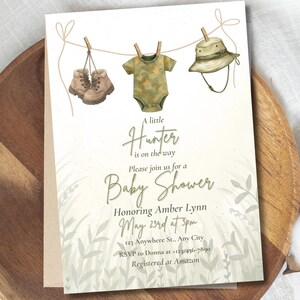 A little
Hunter
is on the way
Please join us for a
Baby Shower
Honoring Amber Lynn
May 23rd at 3pm
123 Anywhere St., Any City
RSVP to Donna at +123-456-7890
Registered at Amazon